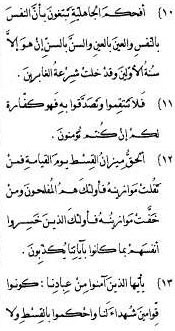 (١٠) أفحكم الجاهلية تبتغون بأن النفس
بالنفس والعين بالعين والسن بالسن إن هو إلا
سنة الأولين وقد خلت شرعة الغابرين .
(١١) فلا تنتقموا وتصدقوا به فهو كفارة
لكم إن كنتم تؤمنون .
(١٢) الحق ميزان القسط يوم القيامة فمن
ثقلت موازينه فأولئك هم المفلحون ومن
خفت موازينه فأولئك الذين خسروا
أنفسهم بما كانوا بآياتنا يكذبون .
(١٣) يأيها الذين آمنوا من عبادنا : كونوا
قوامين شهداء لنا واحكموا بالقسط ولا